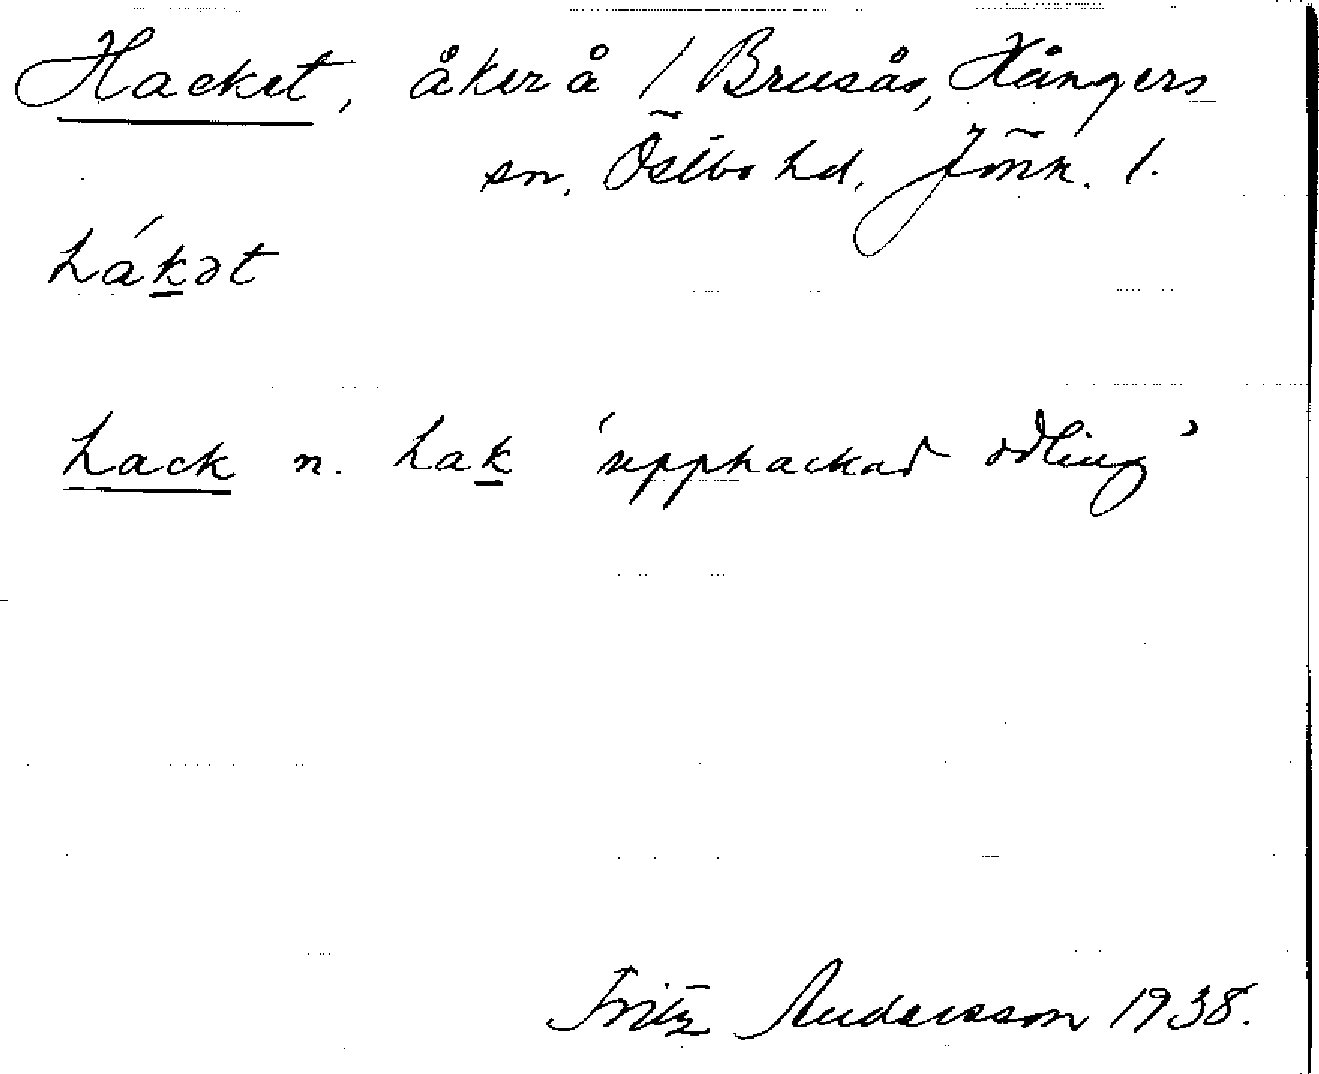 Hacket, åker å / Brusås, Hångers
sn, Östbo hd, Jönk. l.
hákət
hack n. hak 'upphackad odling'
Fritz Andersson 1938.